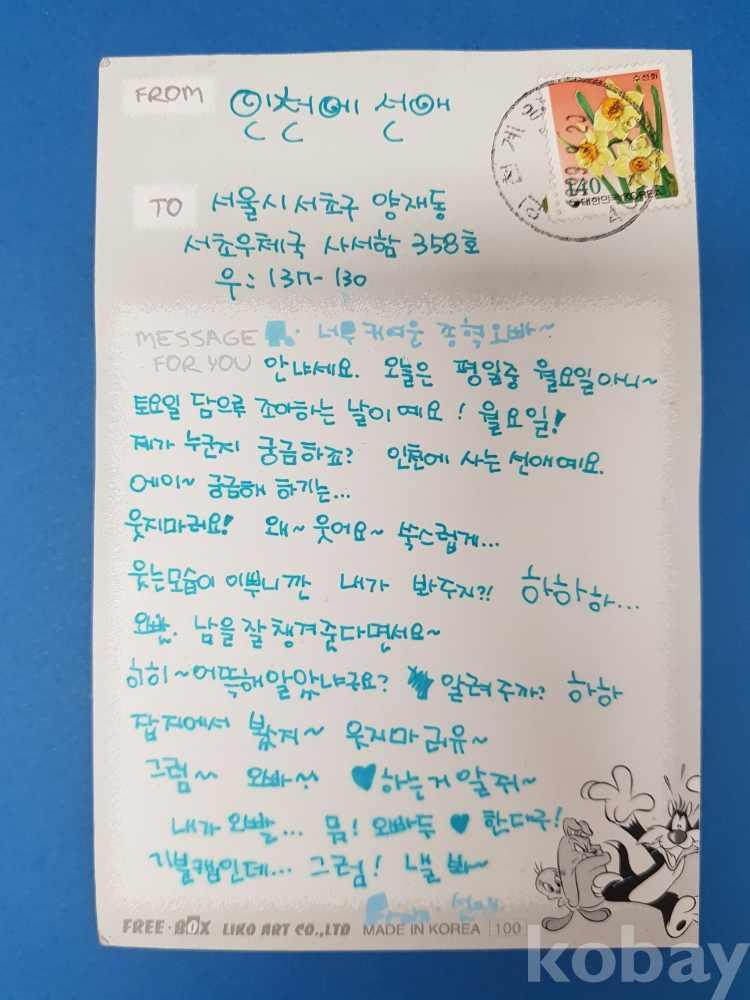 FROM
인천에 선애
수선화
140
대한민국 KOREA
인천계
TO
서울시 서초구 양재동
서초우체국 사서함 358호
우: 137-130
MESSAGE
FOR YOU
너무 귀여운 종혁오빠~
안냐세요. 오늘은 평일중 월요일아니~
토요일 담으루 조아하는 날이예요! 월요일!
제가 누군지 궁금하죠? 인천에 사는 선애예요.
에이~ 궁금해 하기는...
웃지마러요! 왜~ 웃어요~ 쑥스럽게...
웃는모습이 이뿌니깐 내가 봐주지?! 하하하...
오빤. 남을 잘 챙겨준다면서요~
히히~어뜩해알았냐구요? 알려주까? 하하
잡지에서 봤겨~ 웃지마러유~
그럼~~ 오빠~ ♥하는거 알쥐~
내가 오빨... 뭄! 오빠두 ♥ 한다구!
기분캡인데... 그럼! 낼 봐~
From. 선애
FREE·BOX LIKO ART CO.,LTD MADE IN KOREA 100
kobay